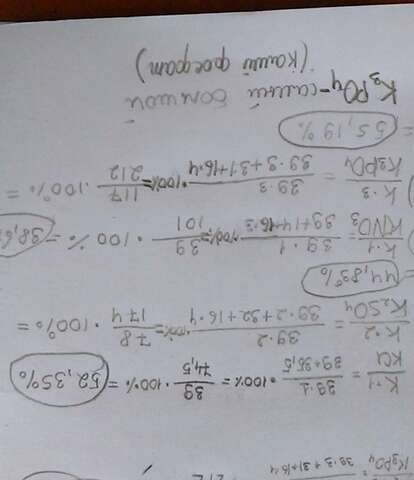 K₃PO₄ = 39·3+31+16·4 212
K·1/KCl = 39·1/39+35,5 · 100% = 39/74,5 · 100% = 52,35%
K·2/K₂SO₄ = 39·2/39·2+32+16·4 · 100% = 78/174 · 100% =
44,83%
K·1/KNO₃ = 39·1/39+14+16·3 · 100% = 39/101 · 100% = 38,6
K·3/K₃PO₄ = 39·3/39·3+31+16·4 · 100% = 117/212 · 100% =
= 55,19%
K₃PO₄ -
(калий фосфат)